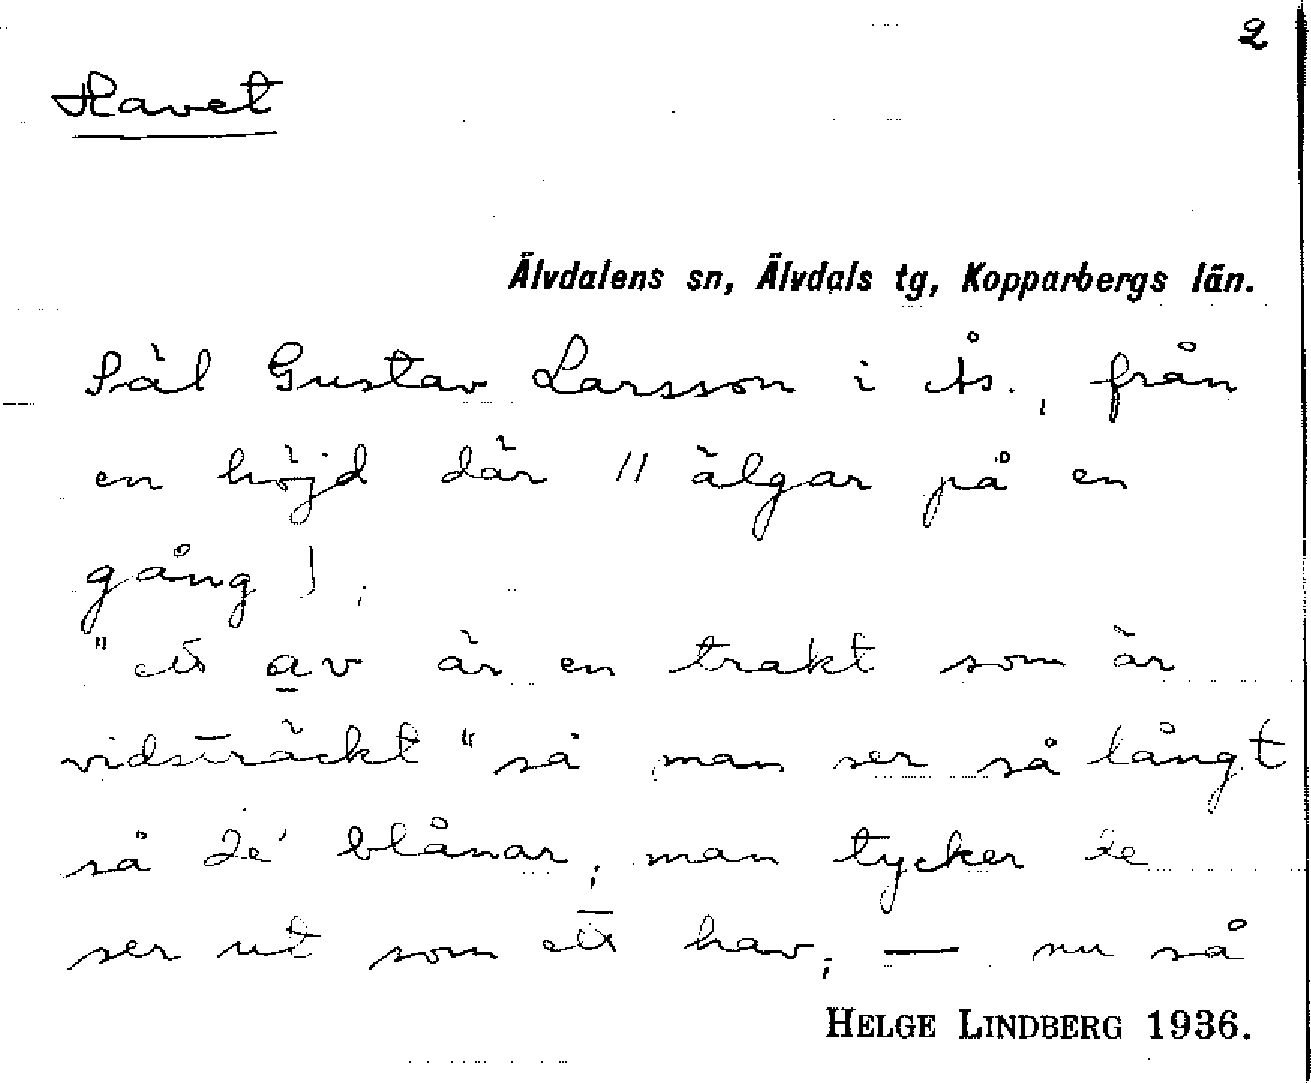 2
Havet
Älvdalens sn, Älvdals tg, Kopparbergs län.
Päl Gustav Larsson i Ås., från
en höjd där 11 älgar på en
gång!
"ett av är en trakt som är
vidsträckt" så man ser så långt
så de' blånar, man tycker de
ser ut som ett hav, — nu så
HELGE LINDBERG 1936.